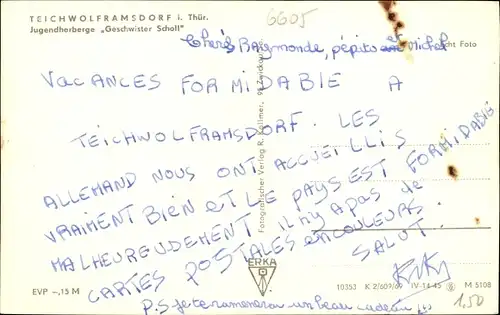 TEICHWOLFRAMSDORF i. Thür.
Jugendherberge „Geschwister Scholl"
6605
Chers Raymonde, pépito et Michel
cht Foto
VACANCES FORMIDABLE A
TEICHWOLFRAMSDORF. LES
ALLEMAND NOUS ONT ACCUEILLIS
VRAIMENT BIEN et LE PAYS EST FORMIDABLE
MALHEUREUDEMENT il n'y a pas de
CARTES POSTALES en COULEURS.
SALUT.
Kiki
P.S je te ramenerai un beau cadeau
Fotografischer Verlag R. Kallmer, 95 Zwickau
ERKA
EVP -,15 M
10353 K 2/609/69 IV-14-45 M 5108
1,50